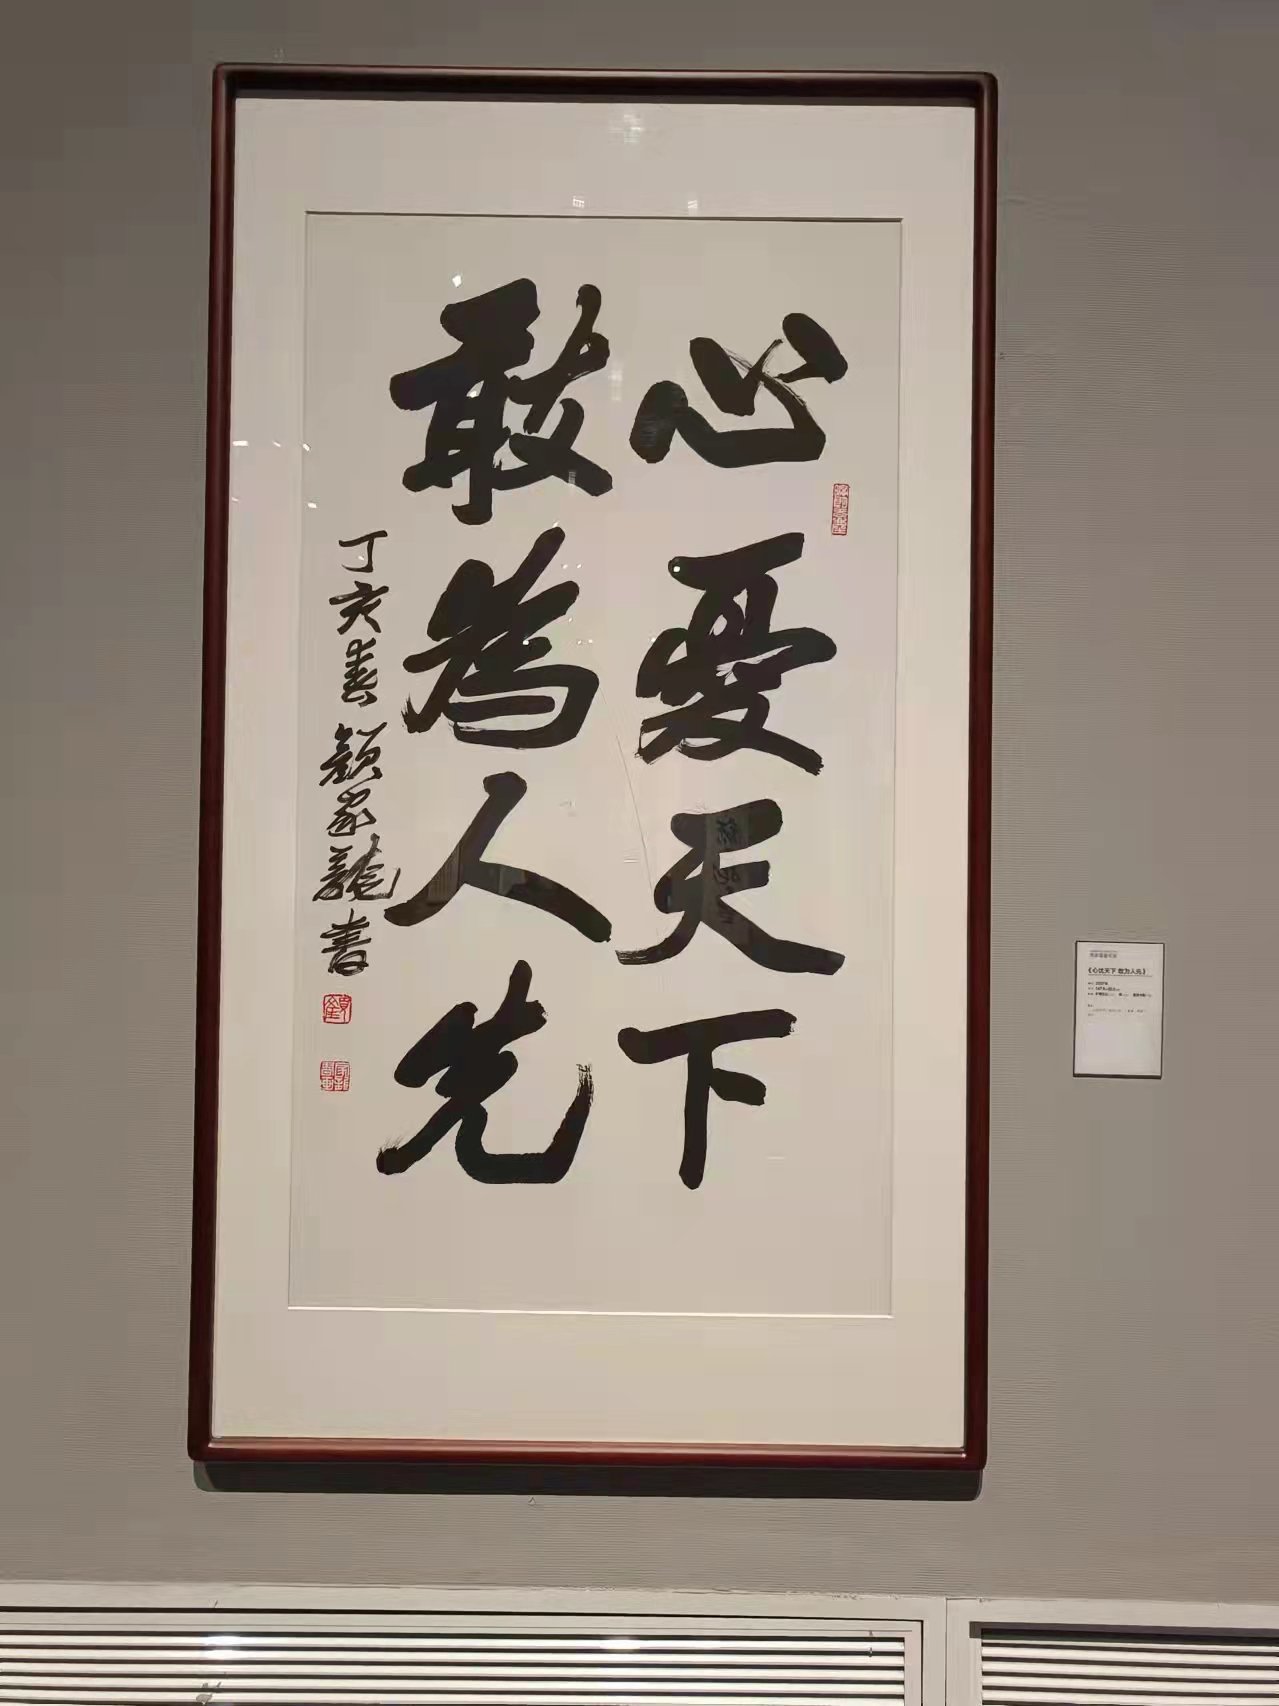 心憂天下
敢為人先
丁亥春顏家龍書
《心忧天下 敢为人先》